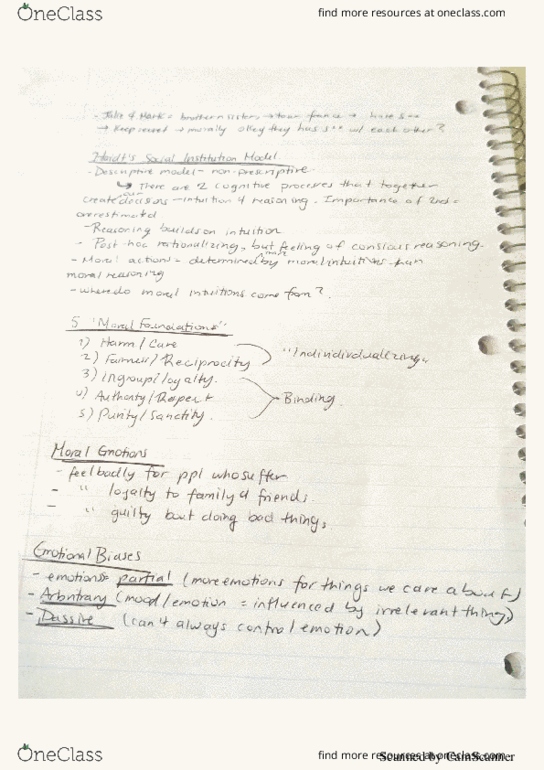 OneClass
find more resources at oneclass.com
- Jake & Mark = brother n sister, → tour france →, have s--
→ Keep secret → morally okay they has s** w/ each other?
Haidt's Social Institution Model
- Descriptive model - non-prescriptive
↳ There are 2 cognitive processes that together
create our decisions - intuition & reasoning. Importance of 2nd =
overestimated
- Reasoning builds on intuition
- Post-hoc rationalizing, but feeling of conscious reasoning.
- Moral actions = determined more by moral intuitives than
moral reasoning
- where do moral intuitions come from?
5 "Moral Foundations"
1) Harm/Care
2) Fairness/Reciprocity
"Individualizing"
3) ingroup/loyalty.
4) Authority/Respect
Binding.
5) Purity/Sanctity.
Moral Emotions
- feel badly for ppl who suffer
- " loyalty to family & friends.
- " guilty but doing bad things,
Emotional Biases
- emotions = partial (more emotions for things we care about)
- Arbitrary (mood/emotion = influenced by irrelevant things)
- Passive (can't always control emotion)
OneClass
find more resources at oneclass.com
Scanned by CamScanner